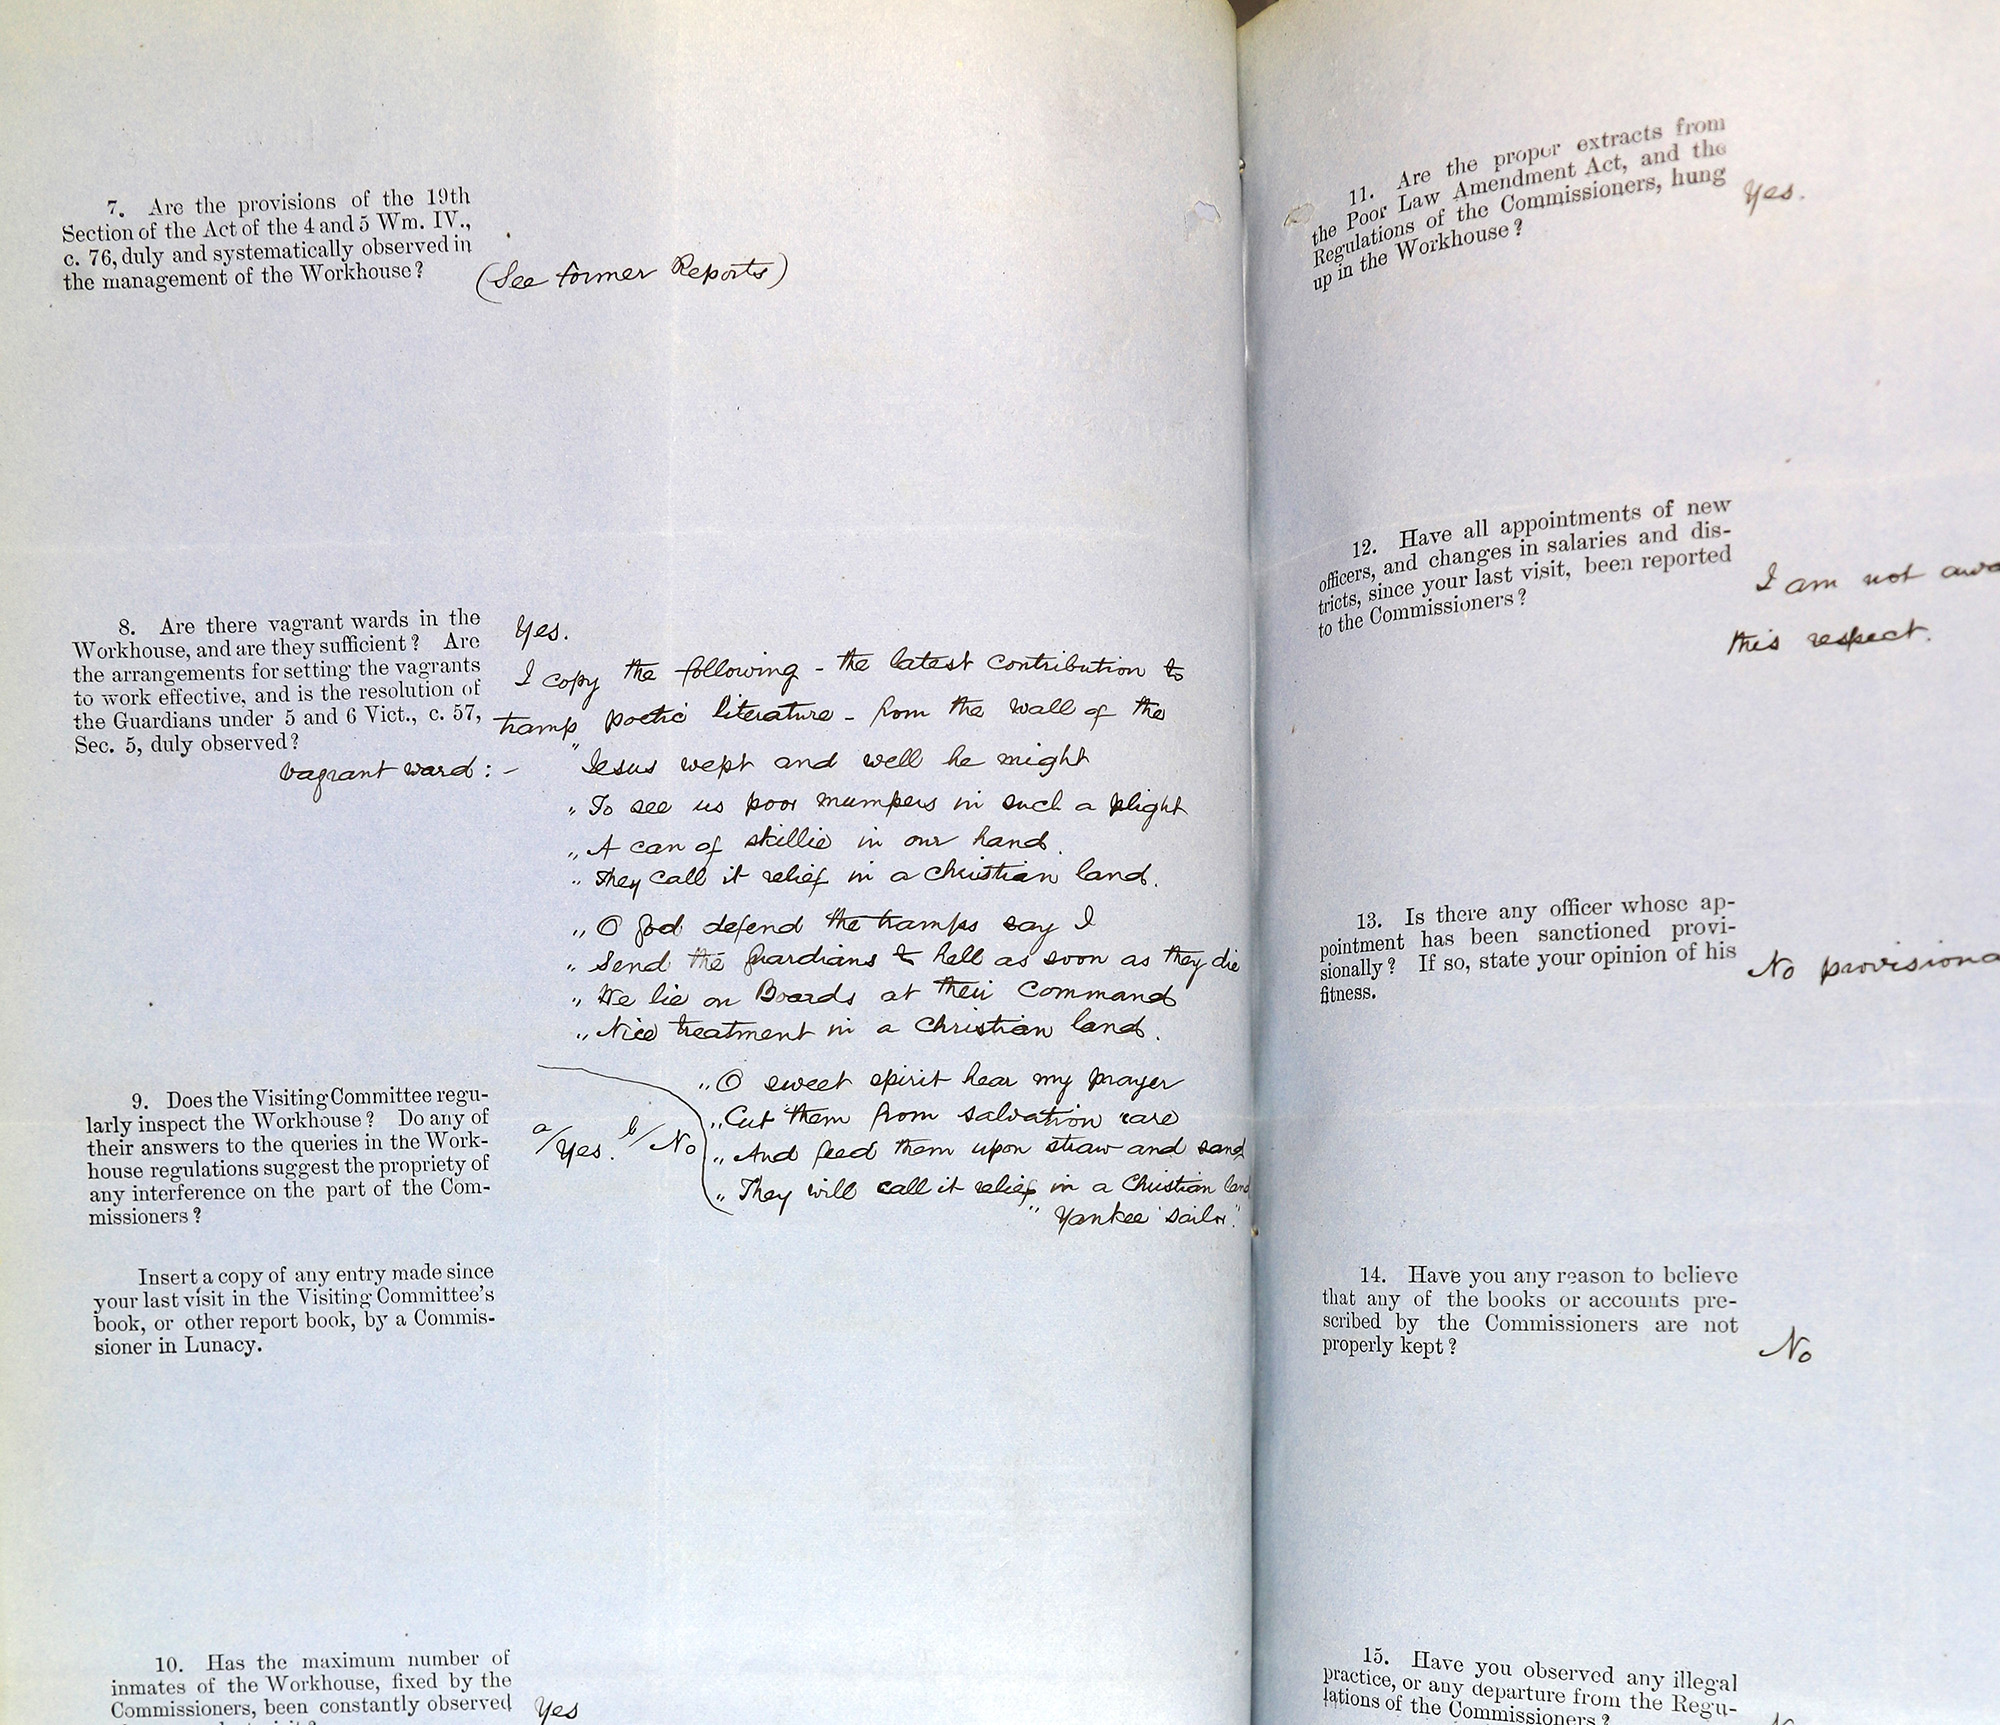 7. Are the provisions of the 19th
Section of the Act of the 4 and 5 Wm. IV.,
c. 76, duly and systematically observed in
the management of the Workhouse?
(See former Reports)
8. Are there vagrant wards in the
Workhouse, and are they sufficient? Are
the arrangements for setting the vagrants
to work effective, and is the resolution of
the Guardians under 5 and 6 Vict., c. 57,
Sec. 5, duly observed?
Yes.
I copy the following - the latest contribution to
tramp poetic literature - from the wall of the
vagrant ward: -
"Jesus wept and well he might
"To see us poor mumpers in such a plight
"A can of skillie in our hand.
"They call it relief in a Christian land.
"O God defend the tramps say I
"Send the guardians to hell as soon as they die
"We lie on Boards at their command
"Nice treatment in a Christian land.
"O sweet spirit hear my prayer
"Cut them from salvation rare
"And feed them upon straw and sand
"They will call it relief in a Christian land
"Yankee Sailor."
9. Does the Visiting Committee regu-
larly inspect the Workhouse? Do any of
their answers to the queries in the Work-
house regulations suggest the propriety of
any interference on the part of the Com-
missioners?
a/ Yes. b/ No
Insert a copy of any entry made since
your last visit in the Visiting Committee's
book, or other report book, by a Commis-
sioner in Lunacy.
10. Has the maximum number of
inmates of the Workhouse, fixed by the
Commissioners, been constantly observed
Yes
11. Are the proper extracts from
the Poor Law Amendment Act, and the
Regulations of the Commissioners, hung
up in the Workhouse?
Yes.
12. Have all appointments of new
officers, and changes in salaries and dis-
tricts, since your last visit, been reported
to the Commissioners?
I am not awa
this respect.
13. Is there any officer whose ap-
pointment has been sanctioned provi-
sionally? If so, state your opinion of his
fitness.
No provisiona
14. Have you any reason to believe
that any of the books or accounts pre-
scribed by the Commissioners are not
properly kept?
No
15. Have you observed any illegal
practice, or any departure from the Regu-
lations of the Commissioners?